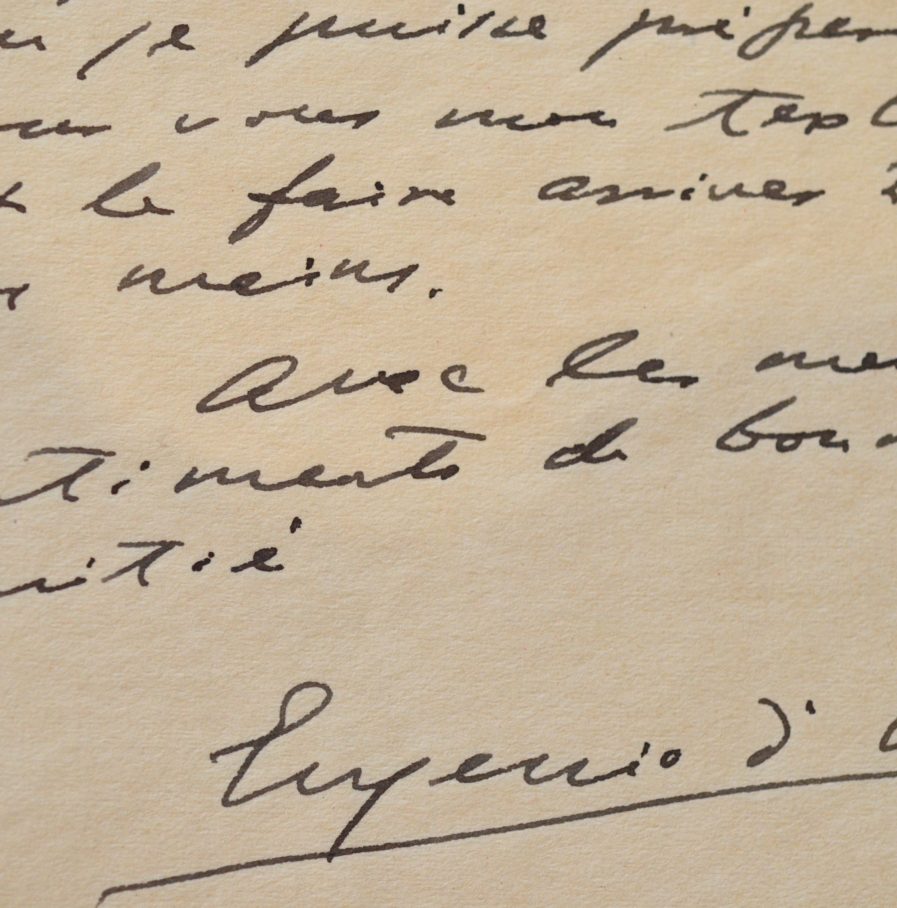 je puisse prépar
vous mon text
le faire arriver
mains.
Avec les me
timents de bon
itié
Eugenio d'